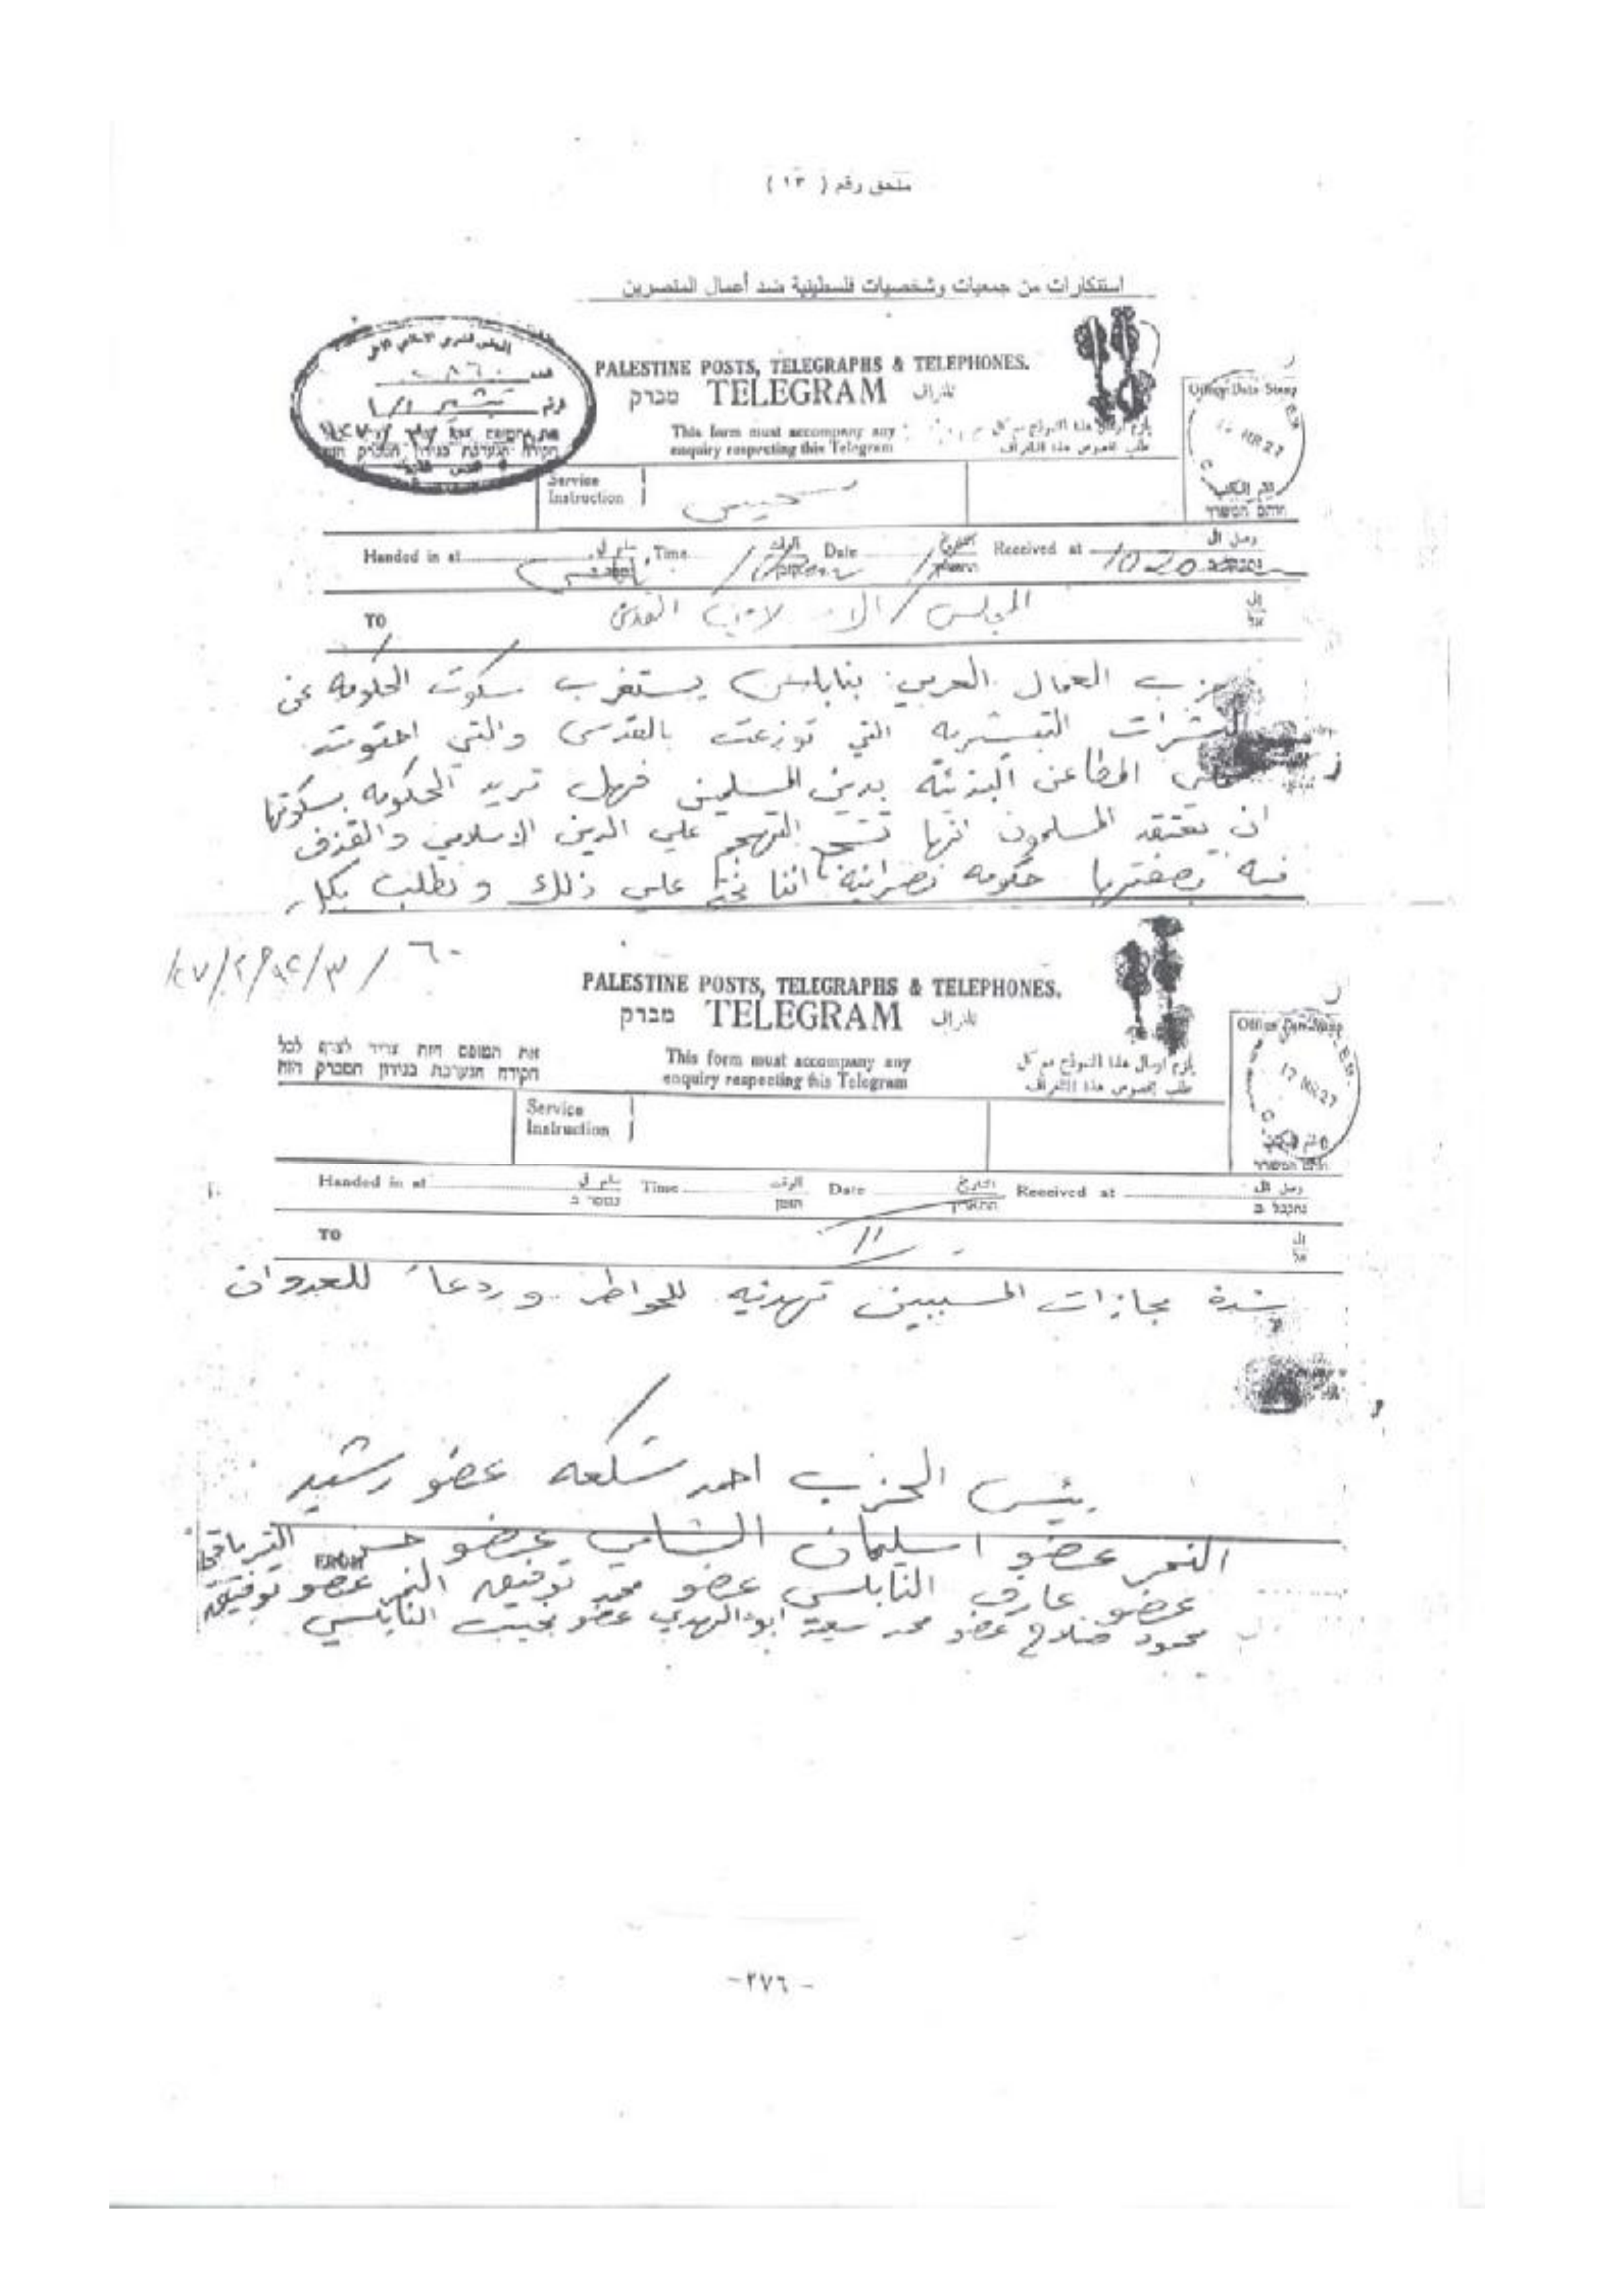 ملحق رقم ( ١٣ )
استنكارات من جمعيات وشخصيات فلسطينية ضد أعمال المنصرين
PALESTINE POSTS, TELEGRAPHS & TELEPHONES.
מברק TELEGRAM تلغراف
This form must accompany any
enquiry respecting this Telegram
Office Date Stamp
Service
Instruction
Handed in at Time Date Received at 1020
TO المجلس القدس
حزب العمال العربي بنابلس يستغرب سكوت الحكومه عن
النشرات التبشيريه التي توزعت بالقدس والتي احتوت
على المطاعن البذيئه بدين المسلمين فهل تريد الحكومه بسكوتها
ان يعتقد المسلمون انها تشجع التهجم علي الدين الاسلامي والقذف
فيه بصفتها حكومه نصرانيه اننا نحتج على ذلك و نطلب بكل
PALESTINE POSTS, TELEGRAPHS & TELEPHONES.
מברק TELEGRAM تلغراف
את הטופס הזה צריך לצרף לכל
חקירה הנערכת בנידון המברק הזה
This form must accompany any
enquiry respecting this Telegram
يلزم ارسال هذا النموذج مع كل
طلب بخصوص هذا التلغراف
Office Date Stamp
12 MR 27
Service
Instruction
Handed in at Time الوقت Date التاريخ Received at
TO 11
شدة مجازات المسببين تهدئيه للخواطر وردعا للعدوان
رئيس الحزب احمد شكعه عضو رشيد
النمر عضو اسليمان الشامي عضو حسن الترياقي
FROM
عضو عارف النابلسي عضو محمد توفيق النمر عضو توفيق
محمود صلاح عضو محمد سعيد ابو الهدي عضو نجيب النابلسي
-٢٧٦-